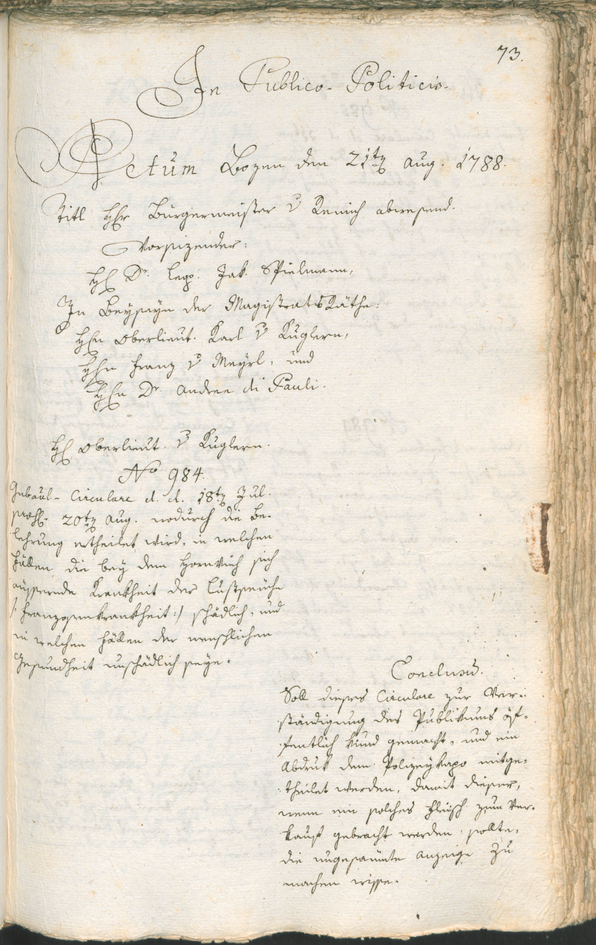 73.
In Publico-Politicis.
Actum Bozen den 21ten Aug. 1788.
Titl HHr Bürgermeister v Remich abwesend.
Vorsizender:
HH Dr. Legs: Jak. Spielmann,
In Beyseyn der MagistratsRäthe:
HHn Oberlieut. Karl v Kuglern,
HHn Franz v Meyrl, und
HHn Dr Andree di Pauli.
HH Oberlieut. v Kuglern.
No 984.
Gubãul-Circulare d. d. 18ten Jul.
pross. 20ten Aug. wodurch die Be-
lehrung ertheilet wird, in welchen
Fällen die bey dem Hornvich sich
äussernde Krankheit der Lustseuche
/: Franzosenkrankheit :/ schädlich, und
in welchen Fällen der menschlichen
Gesundheit unschädlich seye.
Conclusũ.
Soll dieses Circulare zur Ver-
ständigung des Publikums öf-
fentlich kund gemacht, und ein
Abdruk dem Polizeykapo mitge-
theilet werden, damit dieser,
wenn ein solches Fleisch zum Ver-
kauf gebracht werden sollte,
die ungesäumte Anzeige zu
machen wisse.